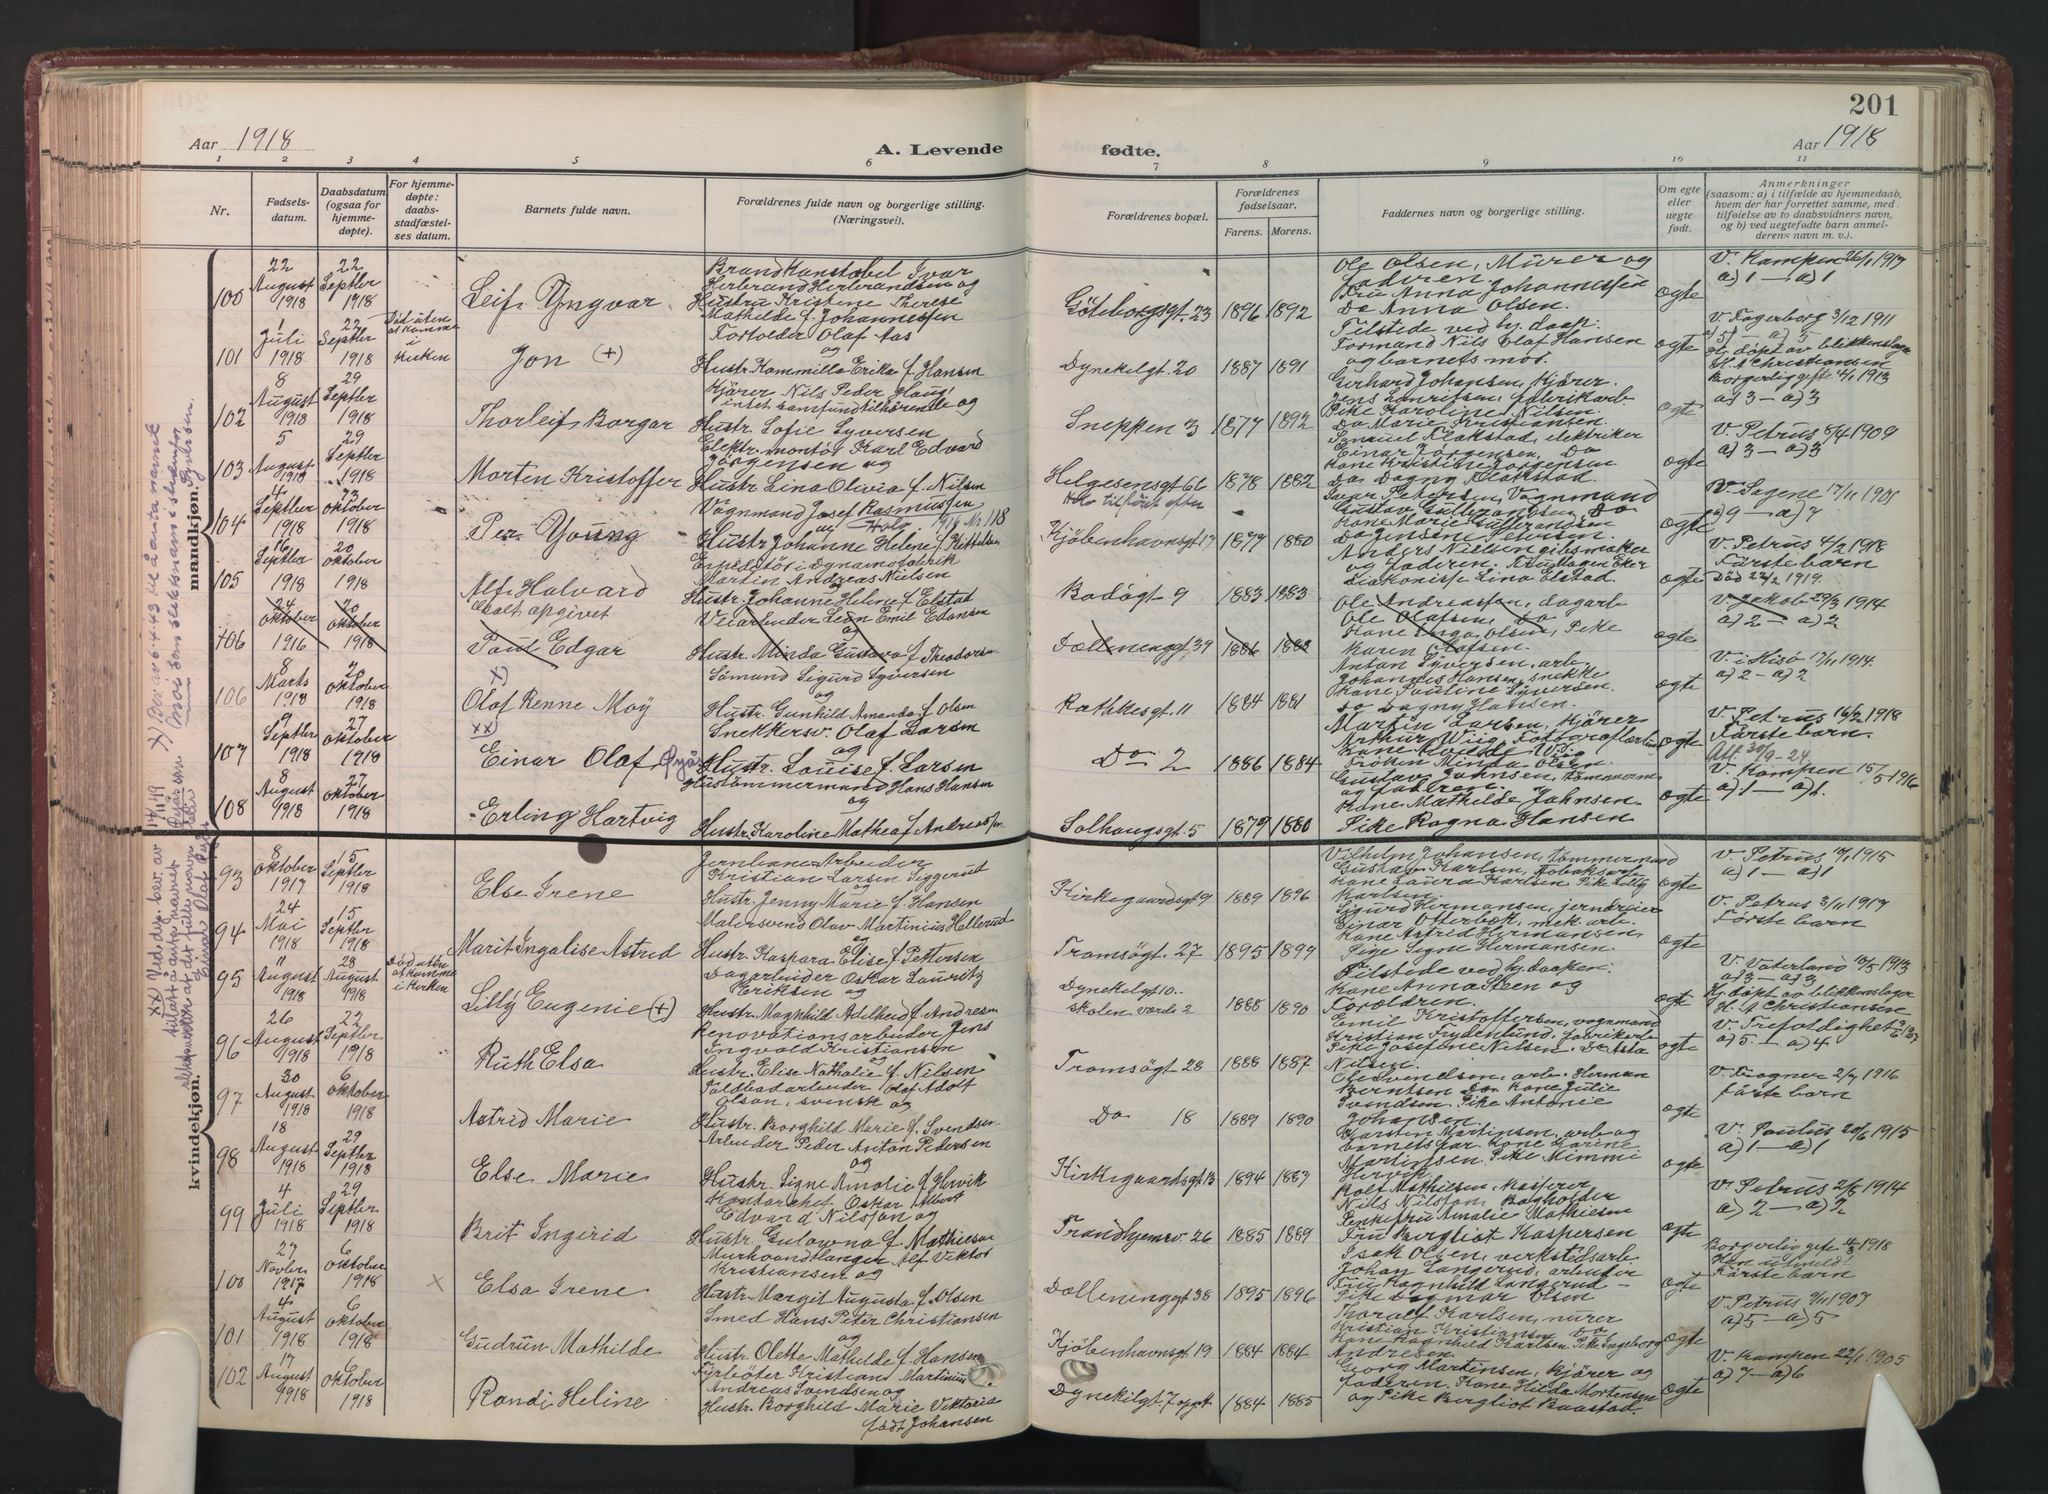 201
Aar 1918
A. Levende
fødte.
Aar 1918
1 2 3 4 5 6 7 8 9 10 11
Nr.
Fødsels-
datum.
Daabsdatum
(ogsaa for
hjemme-
døpte).
For hjemme-
døpte:
daabs-
stadfæstel-
ses datum.
Barnets fulde navn.
Forældrenes fulde navn og borgerlige stilling.
(Næringsvei).
Forældrenes bopæl.
Forældrenes
fødselsaar.
Farens. Morens.
Faddernes navn og borgerlige stilling.
Om egte
eller
uegte
født.
Anmerkninger
(saasom: a) i tilfælde av hjemmedaab,
hvem der har forrettet samme, med
tilføielse av to daabsvidners navn,
og b) ved uegtefødte barn anmel-
derens navn m. v.).
mandkjøn.
100
22
August
1918
22
Septbr
1918
Leif Yngvar
Brandkonstabel Ivar
Herbrand Herbrandsen og
Hustru Kristine Therese
Mathilde f. Johannessen
Göteborggt. 23 1896 1892
Ole Olsen, Murer og
Faderen
Fru Anna Johannessen
Do Anna Olsen.
egte
V. Kampen 26/1 1917
a) 1 — a) 1
101
1
Juli
1918
22
Septbr
1918
Død uten
at komme
i
Kirken
Jon (+)
Forfolder Olaf Aas
og
Hustr. Kammilla Erika f. Hansen
Dynekilgt. 20 1887 1891
Tilstede ved hj. daap:
Formand Nils Olaf Hansen
og barnets mor.
egte
V. Fagerborg 3/12 1911
a) 5 — a) 5
Hj. døpt av blikkenslager
H. A. Christiansen
102
8
August
1918
29
Septbr
1918
Thorleif Borgar
Kjörer Nils Peder Haug
intet samfund tilhörende og
Hustr. Sofie Syversen
Sneppen 3 1877 1892
Gerhard Johansen, Kjörer.
Jens Lauritsen, fabrikarb.
Pike Karoline Nilsen.
Do Marie Kristiansen
egte
Borgerlig gifte 4/1 1913
a) 3 — a) 3
103
5
August
1918
29
Septbr
1918
Morten Kristoffer
Elektr. montör Karl Edvard
Jörgensen og
Hustr. Lina Olivia f. Nilsen
Helgesensgt 62 1878 1882
Samuel Flakstad, elektriker
Einar Jorgensen, Do
Kone Kristine Jorgensen
Do Dagny Flakstad.
egte
V. Petrus 5/4 1909
a) 3 — a) 3
104
4
Septber
1918
13
oktober
1918
Per Young
Vognmand Josef Rasmussen
og
Hustr. Johanne Helene f. Kittelsen
1916 Nr 118
Kjöbenhavnsgt 17 1877 1880
Ivar Petersen, Vognmand
Gustav Gulbrandsen, Do
Kone Marie Gulbrandsen
Do Jensine Petersen.
egte
V. Sagene 17/11 1901
a) 9 — a) 7
105
16
Septbr
1918
20
oktober
1918
Alf Halvard
Expeditör i Dynamofabrik
Martin Andreas Nielsen
Hustr. Johanne Helene f. Elstad
Bodögt 9 1883 1883
Anders Nielsen, gibsmaker
og Faderen. Fru Hagen Eker
Diakonisse Lina Elstad.
egte
V. Petrus 4/2 1918
Förste barn
Död 22/2 1919.
galt opgivet
106
24
oktober
1916
20
oktober
1918
Paul Edgar
Veiarbeider Leon Emil Edansen
og
Hustr. Minda Gustava f. Theodorsen
Dælenenggt. 39 1886 1882
Ole Andreassen, dagarb
Ole Olafsen, Do
Kone Inga Olsen, Pike
Karen Olafsen.
egte
V. Jakob 29/3 1914
a) 2 — a) 2
106
8
Marts
1918
20
oktober
1918
x)
Olaf Renne Moÿ
Sömand Sigurd Syversen
og
Hustr. Gunhild Amanda f. Olsen
Rathkesgt. 11 1884 1881
Anton Syversen, arb.
Johannes Hansen, snekke
Kone Pauline Syversen.
Do Dagny Hansen.
egte
V. i Hisö 17/11 1914.
a) 2 — a) 2
107
9
Septbr
1918
27
oktober
1918
xx)
Einar Olaf Øyås
Snekkersv. Olaf Larsen
og
Hustr. Louise f. Larsen
Do 2 1886 1884
Martin Larsen, Kjörer
Arthur Wiig, Fotograflærling
Kone Alvilde Wiig
Fröken Minda Olsen
egte
V. Petrus 16/2 1918
Förste barn.
Att. 30/9-24.
108
8
August
1918
27
oktober
1918
Erling Hartvig
Hustömmermand Hans Hansen
og
Hustr. Karoline Mathea f. Andreassen
Solhaugsgt. 5 1879 1880
Gustav Johnsen, tömmerm.
og faderen.
Kone Mathilde Johnsen.
Pike Ragna Hansen
egte
V. Kampen 15/5 1916
a) 1 — a) 1.
kvindekjøn.
93
8
oktober
1917
15
Septbr
1918
Else Irene
Jernbane-Arbeider
Kristian Larsen Siggerud
og
Hustr. Jenny Marie f. Hansen
Kirkegaardsgt 9 1889 1896
Vilhelm Johansen, tömmermand
Gustav Karlsen, Tobaksarb
Kone Laura Karlsen Pike Lilly
Karlsen
egte
V. Petrus 1915
a) 1 — a) 1
94
24
Mai
1918
15
Septbr
1918
Marit Ingalise Astrid
Malersvend Olav Martinius Hellerud
og
Hustr. Kaspara Elise f. Pettersen
Tromsögt. 27 1895 1899
Sigurd Hermansen, jerndreier
Einar Otterbek, mek. arb.
Kone Astrid Hermansen
Pige Signe Hermansen.
egte
V. Petrus 3/11 1917
Förste barn
95
11
August
1918
28
August
1918
Död uten
at komme
i kirken
Lilly Eugenie (+)
Dagarbeider Oskar Lauritz
Eriksen og
Hustr. Magnhild Adelheid f. Andresen
Dynekilgt 10.
Skolen værds 2 1888 1890
Tilstede ved hj. daaben:
Kone Anna Steen og
Forældren.
egte
V. Vaterland 10/5 1913
a) 3 — a) 3
Hj. döpt av blikkenslager
H. A. Christiansen
96
26
August
1918
22
Septbr
1918
Ruth Elsa
Renovationsarbeider Jens
Ingvald Kristiansen
og
Hustr. Elise Nathalie f. Nilsen
Tromsögt 28 1888 1887
Emil Kristoffersen, vognmand
Kristian Frydenlund, fabrikarb
Pike Josefine Nilsen. Do Asta
Nilsen
egte
V. Trefoldighet
a) 5 — a) 4
97
30
August
1918
6
oktober
1918
Astrid Marie
Olaf Adolf
Olson, svensk og
Hustr. Borghild Marie f. Svendsen
Do 18 1889 1890
Ole Svendsen, arb. Herman
Berntsen Do Kone Julie
Svendsen. Pike Antonie
Johansen
egte
V. Frogner 2/7 1916
förste barn
98
18
August
1918
29
Septbr
1918
Else Marie
Arbeider Peder Anton Pedersen
og
Hustr. Signe Amalie f. Hervik
Kirkegaardsgt 13 1894 1883
Karsten Martinsen, arb og
barnets far. Kone Karine
Martinsen. Pike Mimmi
Hervik
egte
V. Paulus 20/6 1915
a) 1 — a) 1
99
4
Juli
1918
29
Septbr
1918
Brit Ingirid
Kontorchef Oskar Albert
Edvard Nilsson og
Hustr. Gulowna f. Mathiesen
Trondhjemsv. 26 1885 1889
Rolf Mathiesen, kasserer
Nils Nilsson, Bogholder
Enkefru Amalie Mathiesen
Fru Bergliot Kaspersen
egte
V. Petrus 2/8 1914
a) 2 — a) 2
100
27
Novbr
1917
6
oktober
1918
x
Elsa Irene
Murhaandlanger Alf Viktor
Kristiansen og
Hustr. Margit Augusta f. Olsen
Dælenenggt 38 1895 1896
Isak Olsen, verkstedsarb.
Johan Langerud, arbeider
Fru Ragnhild Langerud
Pike Dagmar Olsen
egte
Borgerlig gifte 1918
Förste barn
101
4
August
1918
6
oktober
1918
Gudrun Mathilde
Smed Hans Peter Christiansen
og
Hustr. Olette Mathilde f. Hansen
Kjöbenhavnsgt. 19 1884 1884
Thoralf Karlsen, murer
Kristian Kristiansen Do
Kone Ragnhild Karlsen Pike Ingeborg
Andresen
egte
V. Petrus 1907
a) 5 — a) 5
102
17
August
1918
6
oktober
1918
Randi Heline
Fyrböter Kristian Martinius
Andreas Svendsen og
Hustr. Borghild Marie Viktoria
född Johansen
Dynekilgt 7 opg. 1884 1885
Georg Martinsen, kjörer og
faderen. Kone Hilda Mortensen
og Pike Bergliot Baastad.
egte
V. Kampen 22/1 1905
a) 7 — a) 6